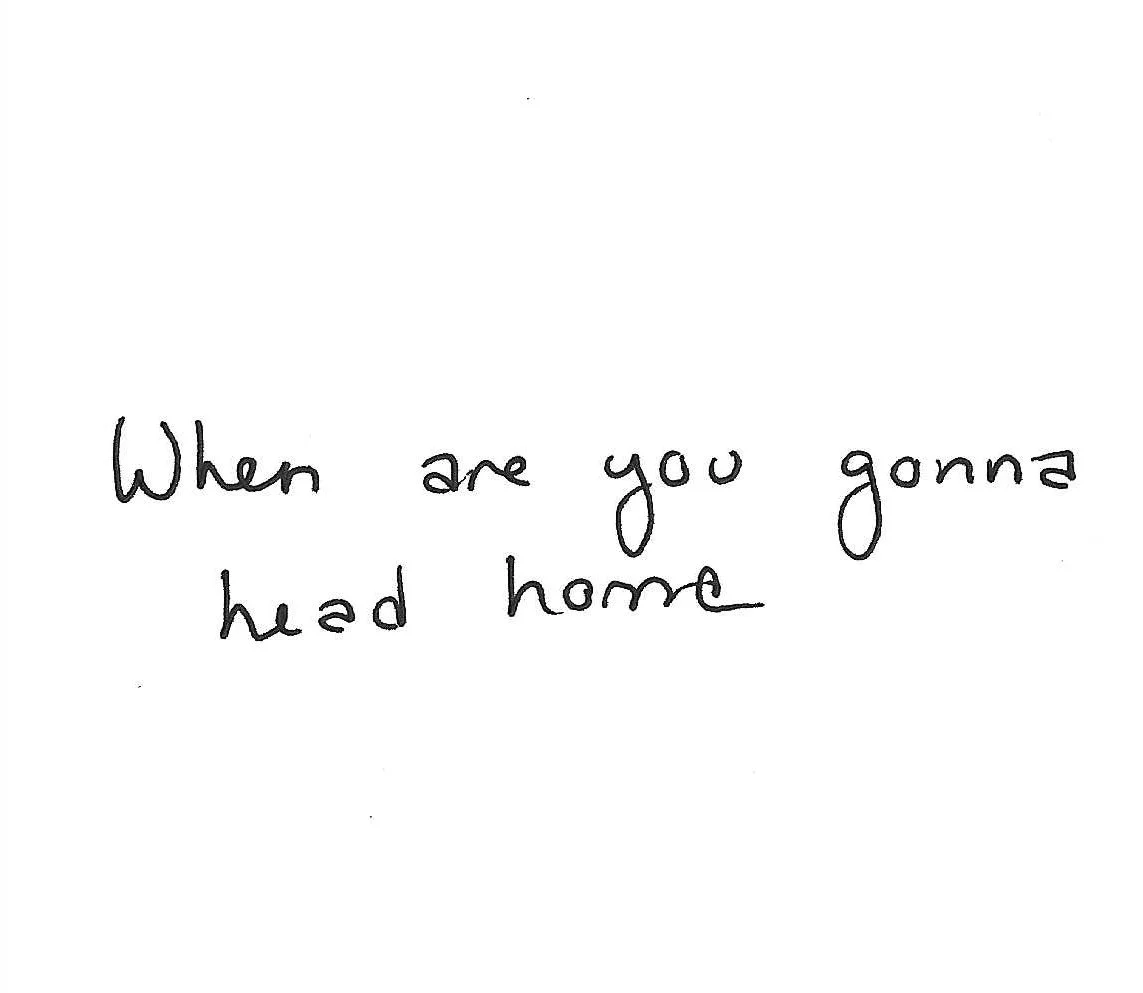 When are you gonna
head home